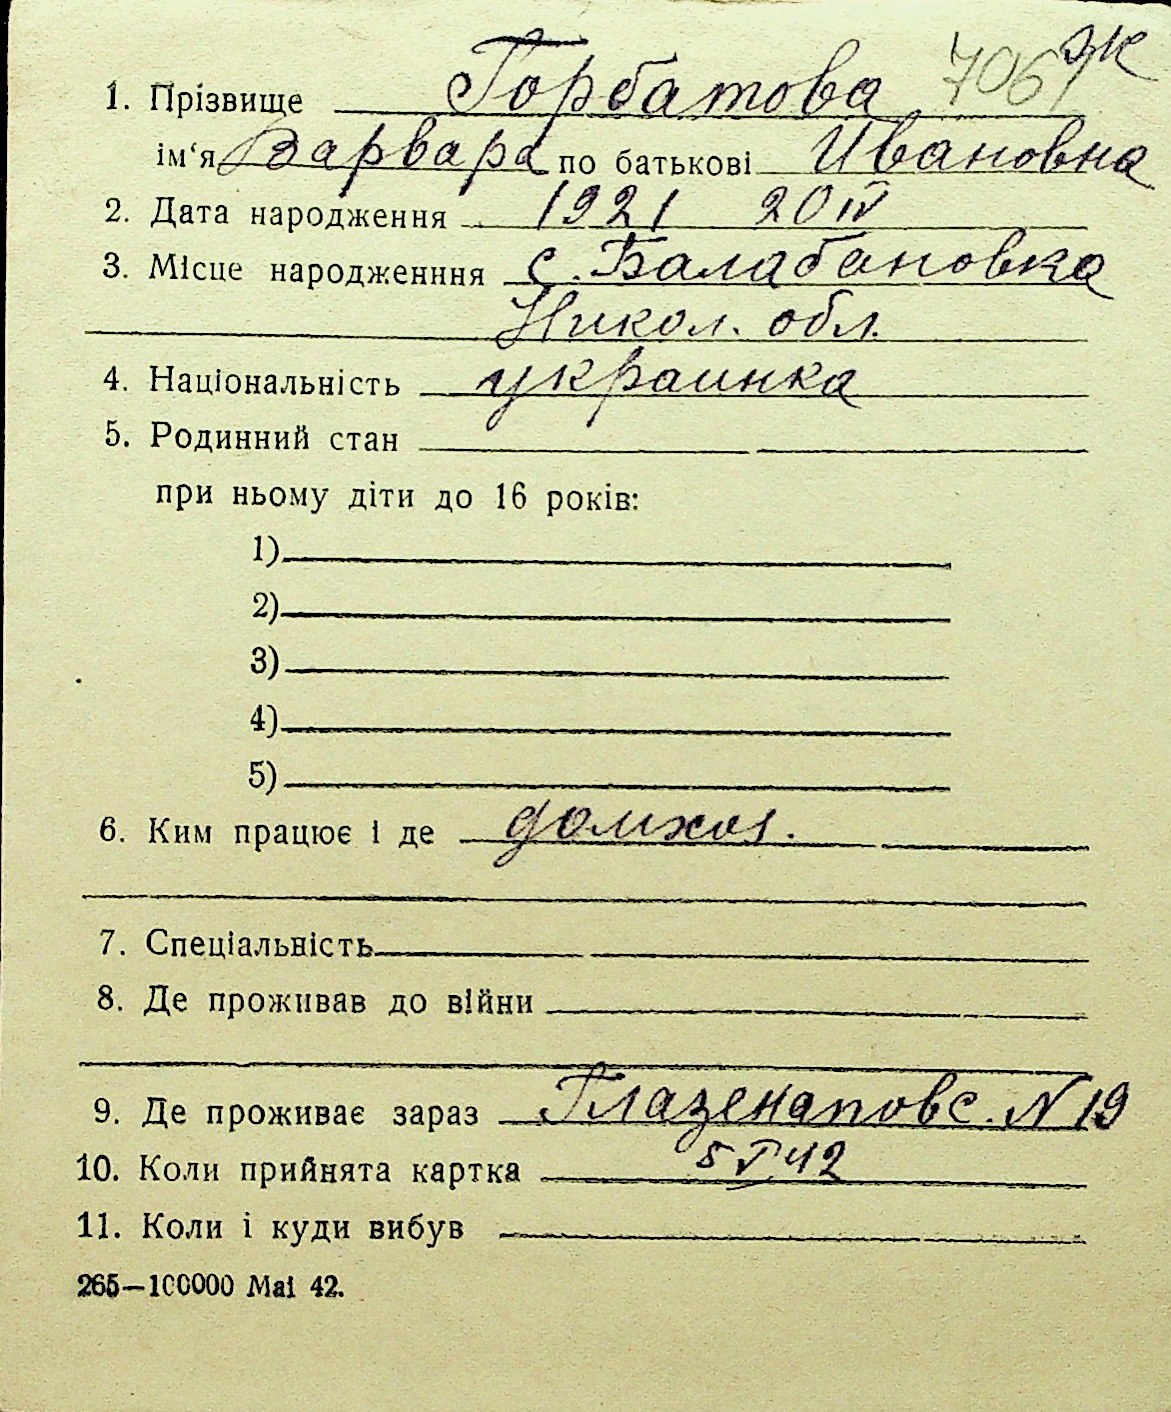 ж
706
1. Прізвище Горбатова
ім‘я Варвара по батькові Ивановна
2. Дата народження 1921 20 IV
3. Місце народженння с. Балабановка
Никол. обл.
4. Національність украинка
5. Родинний стан
при ньому діти до 16 років:
1)
2)
3)
4)
5)
6. Ким працює і де домхоз.
7. Спеціальність
8. Де проживав до війни
9. Де проживає зараз Глазенаповс. N 19
10. Коли прийнята картка 5 V 42
11. Коли і куди вибув
265—100000 Маі 42.